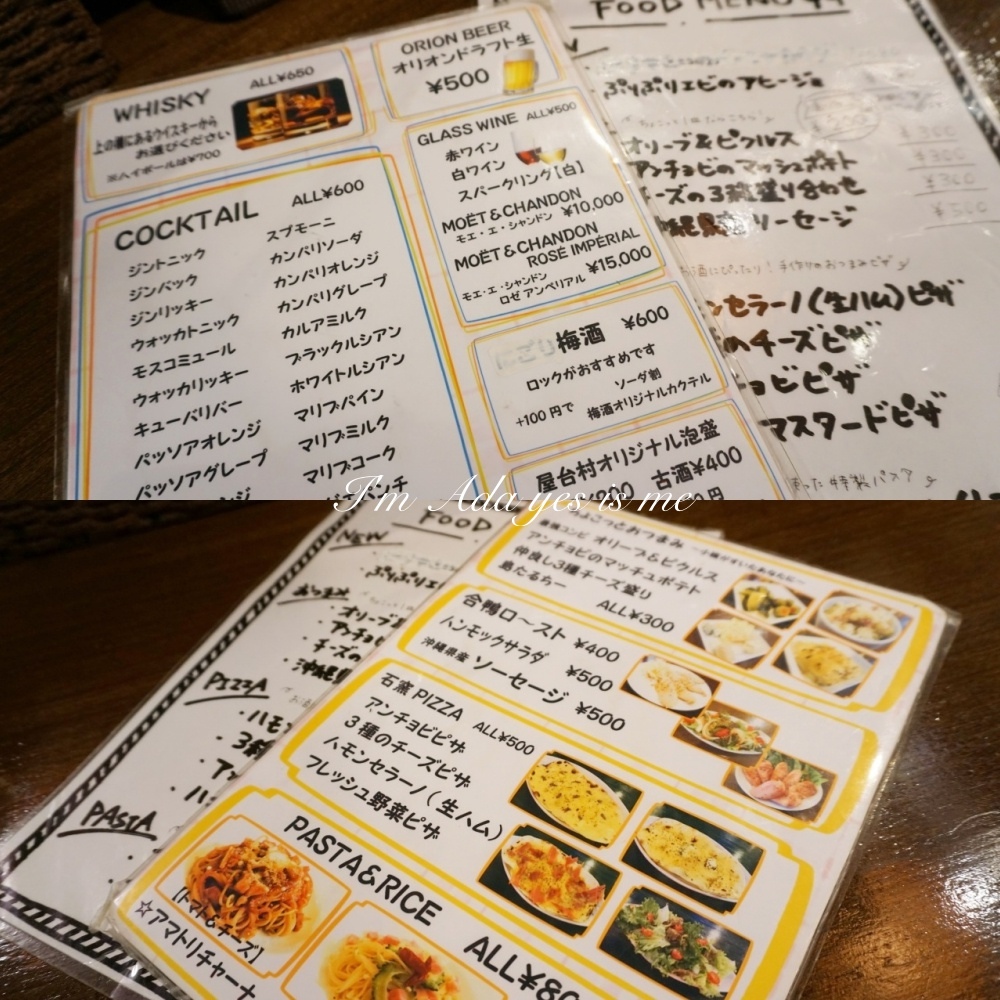 WHISKY ALL¥650
上の棚にあるウイスキーから
お選びください
※ハイボールは¥700
ORION BEER
オリオンドラフト生
¥500
COCKTAIL ALL¥600
ジントニック
ジンバック
ジンリッキー
ウォッカトニック
モスコミュール
ウォッカリッキー
キューバリバー
パッソアオレンジ
パッソアグレープ
スプモーニ
カンパリソーダ
カンパリオレンジ
カンパリグレープ
カルアミルク
ブラックルシアン
ホワイトルシアン
マリブパイン
マリブミルク
マリブコーク
GLASS WINE ALL¥500
赤ワイン
白ワイン
スパークリング【白】
MOËT & CHANDON
モエ・エ・シャンドン ¥10,000
MOËT & CHANDON
ROSÉ IMPÉRIAL
モエ・エ・シャンドン ¥15,000
ロゼ アンペリアル
にごり梅酒 ¥600
ロックがおすすめです
+100円で ソーダ割
梅酒オリジナルカクテル
屋台村オリジナル泡盛
古酒¥400
FOOD MENU
ぷりぷりエビのアヒージョ
オリーブ&ピクルス
アンチョビのマッシュポテト
チーズの3種盛り合わせ
ソーセージ
お酒にぴったり!手作りのおつまみピザ
ンセラーノ(生ハム)ピザ
のチーズピザ
ョビピザ
マスタードピザ
I'm Ada yes is me
FOOD
NEW
ぷりぷりエ
おつまみ
・オリーブ
・アンチョビ
・チーズの
・沖縄県
PIZZA
・ハモン
・3種
・アン
・ハ
PASTA
ちょこっとおつまみ
最強コンビ オリーブ&ピクルス
アンチョビのマッチュポテト
仲良し3種チーズ盛り
島たるちー
ALL¥300
合鴨ロ〜スト ¥400
ハンモックサラダ ¥500
沖縄県産 ソーセージ ¥500
石窯PIZZA ALL¥500
アンチョビピザ
3種のチーズピザ
ハモンセラーノ(生ハム)
フレッシュ野菜ピザ
PASTA&RICE
ALL¥80
[トマト&チーズ]
☆アマトリチャーナ